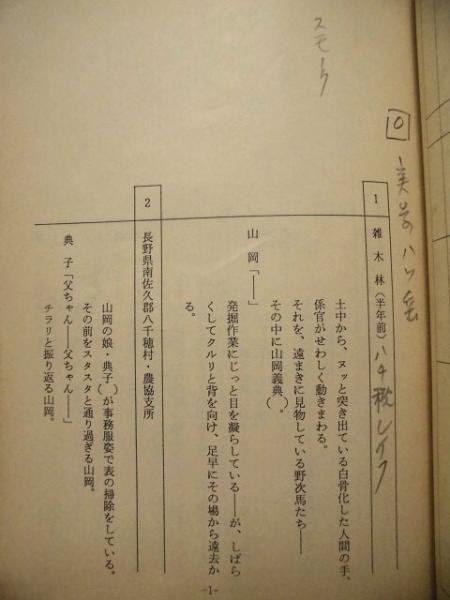 0
1 雑木林(半年前)
土中から、ヌッと突き出ている白骨化した人間の手。
係官がせわしく動きまわる。
それを、遠まきに見物している野次馬たち――
その中に山岡義典( )。
山岡「――」
発掘作業にじっと目を凝らしている――が、しばら
くしてクルリと背を向け、足早にその場から遠去か
る。
2 長野県南佐久郡八千穂村・農協支所
山岡の娘・典子( )が事務服姿で表の掃除をしている。
その前をスタスタと通り過ぎる山岡。
典子「父ちゃん――父ちゃん――」
チラリと振り返る山岡。
-1-